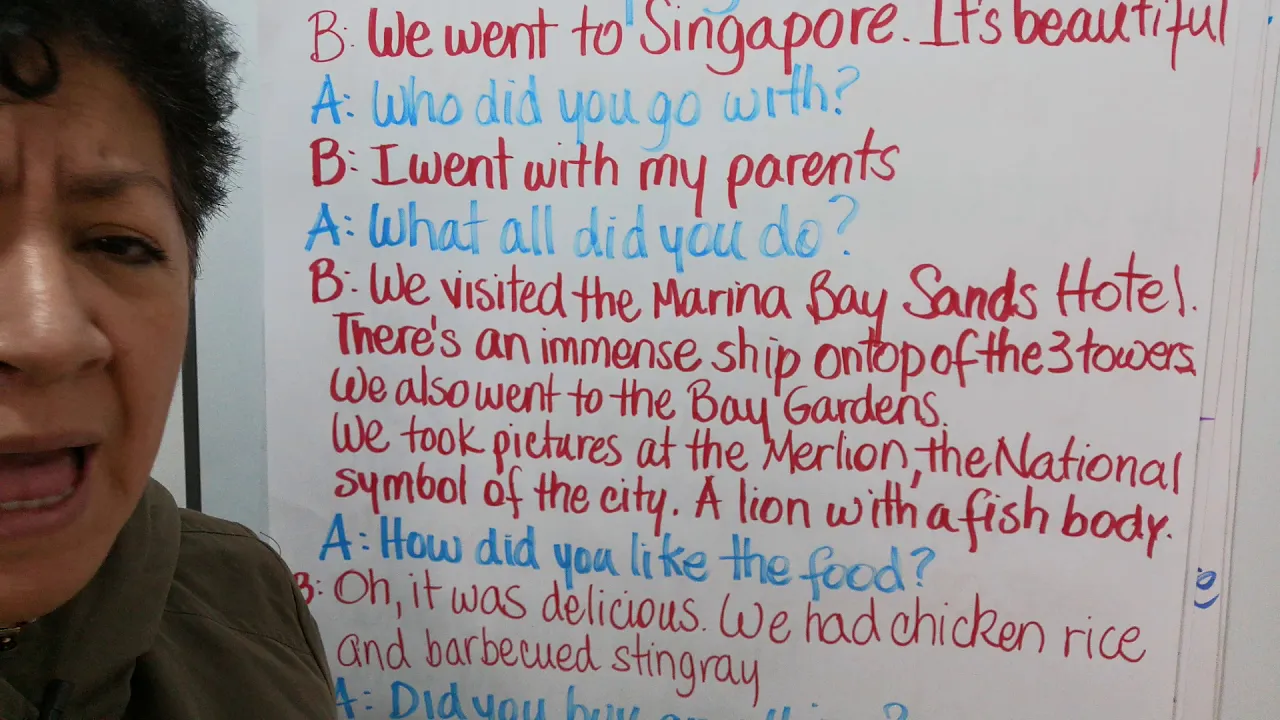 B: We went to Singapore. It's beautiful
A: Who did you go with?
B: I went with my parents
A: What all did you do?
B: We visited the Marina Bay Sands Hotel.
There's an immense ship ontop of the 3 towers
We also went to the Bay Gardens.
We took pictures at the Merlion, the National
symbol of the city. A lion with a fish body.
A: How did you like the food?
B: Oh, it was delicious. We had chicken rice
and barbecued stingray
A: Did you buy anything?